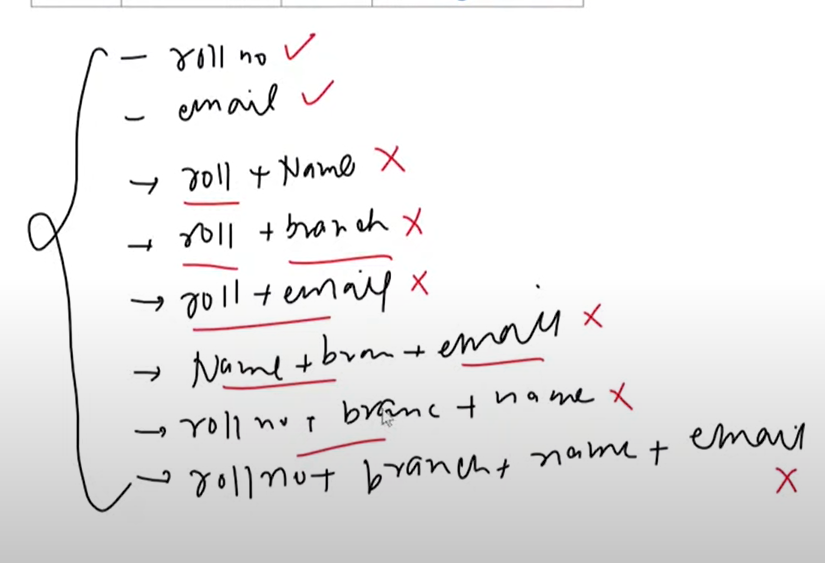 - roll no ✓
- email ✓
→ roll + Name X
→ roll + branch X
→ roll + email X
→ Name + bran + email X
→ roll no + branc + name X
→ roll no + branch + name + email X